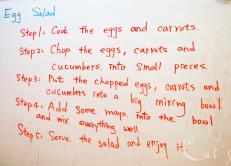 Egg Salad
Step1: Cook the eggs and carrots.
Step2: Chop the eggs, carrots and
cucumbers into small pieces.
Step3: Put the chopped eggs, carrots and
cucumbers into a big mixing bowl.
Step4: Add some mayo. into the bowl
and mix everything well.
Step5: Serve the salad and enjoy it.